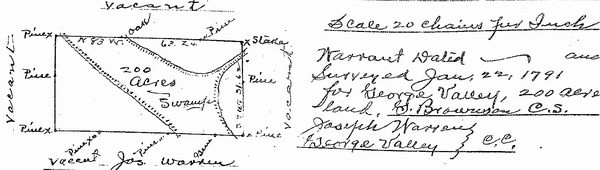 vacant
Pine x
N 83 W.
Oak
63.24
Pine
x Stake
Pine
200
Acres
Swamp
Pine
vacant
vacant
Pine x
Pine x
Pine
Pine
x Pine
vacant Jos. Warren
Scale 20 chains per Inch
Warrant Dated
Surveyed Jan. 22, 1791
for George Valley, 200 acre
land,
Joseph Warren
George Valley } C.C.